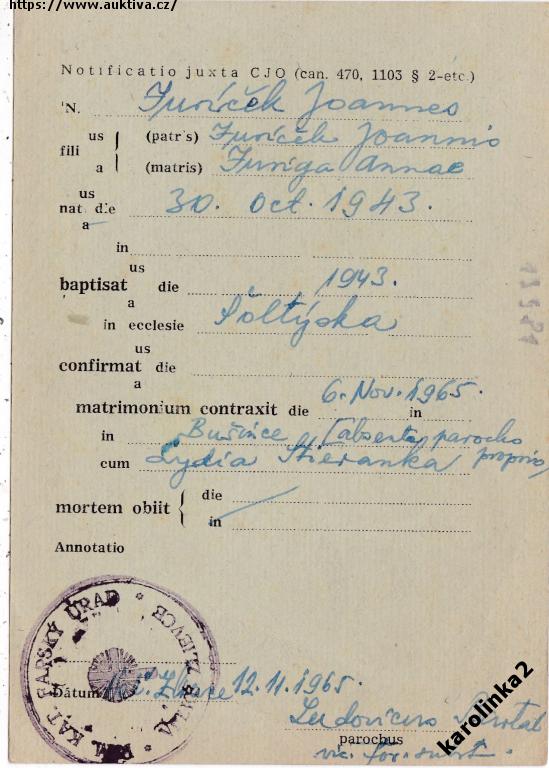 https://www.auktiva.cz/
Notificatio juxta CJO (can. 470, 1103 § 2-etc.)
N. Juríček Joannes
us
fili (patr's) Juríček Joannis
a (matris) Juriga Annae
us
nat die 30. Oct. 1943.
a
in
us
baptisat die 1943.
a
in ecclesie Šoltýska
us
confirmat die
a
matrimonium contraxit die 6. Nov. 1965. in
in Bušince (absente parocho
cum Lydia Stieranka proprio)
mortem obiit die
in
Annotatio
RÍM. KAT. FARSKÝ ÚRAD
Dátum 12.11.1965.
Ludovicus
parochus
karolinka2